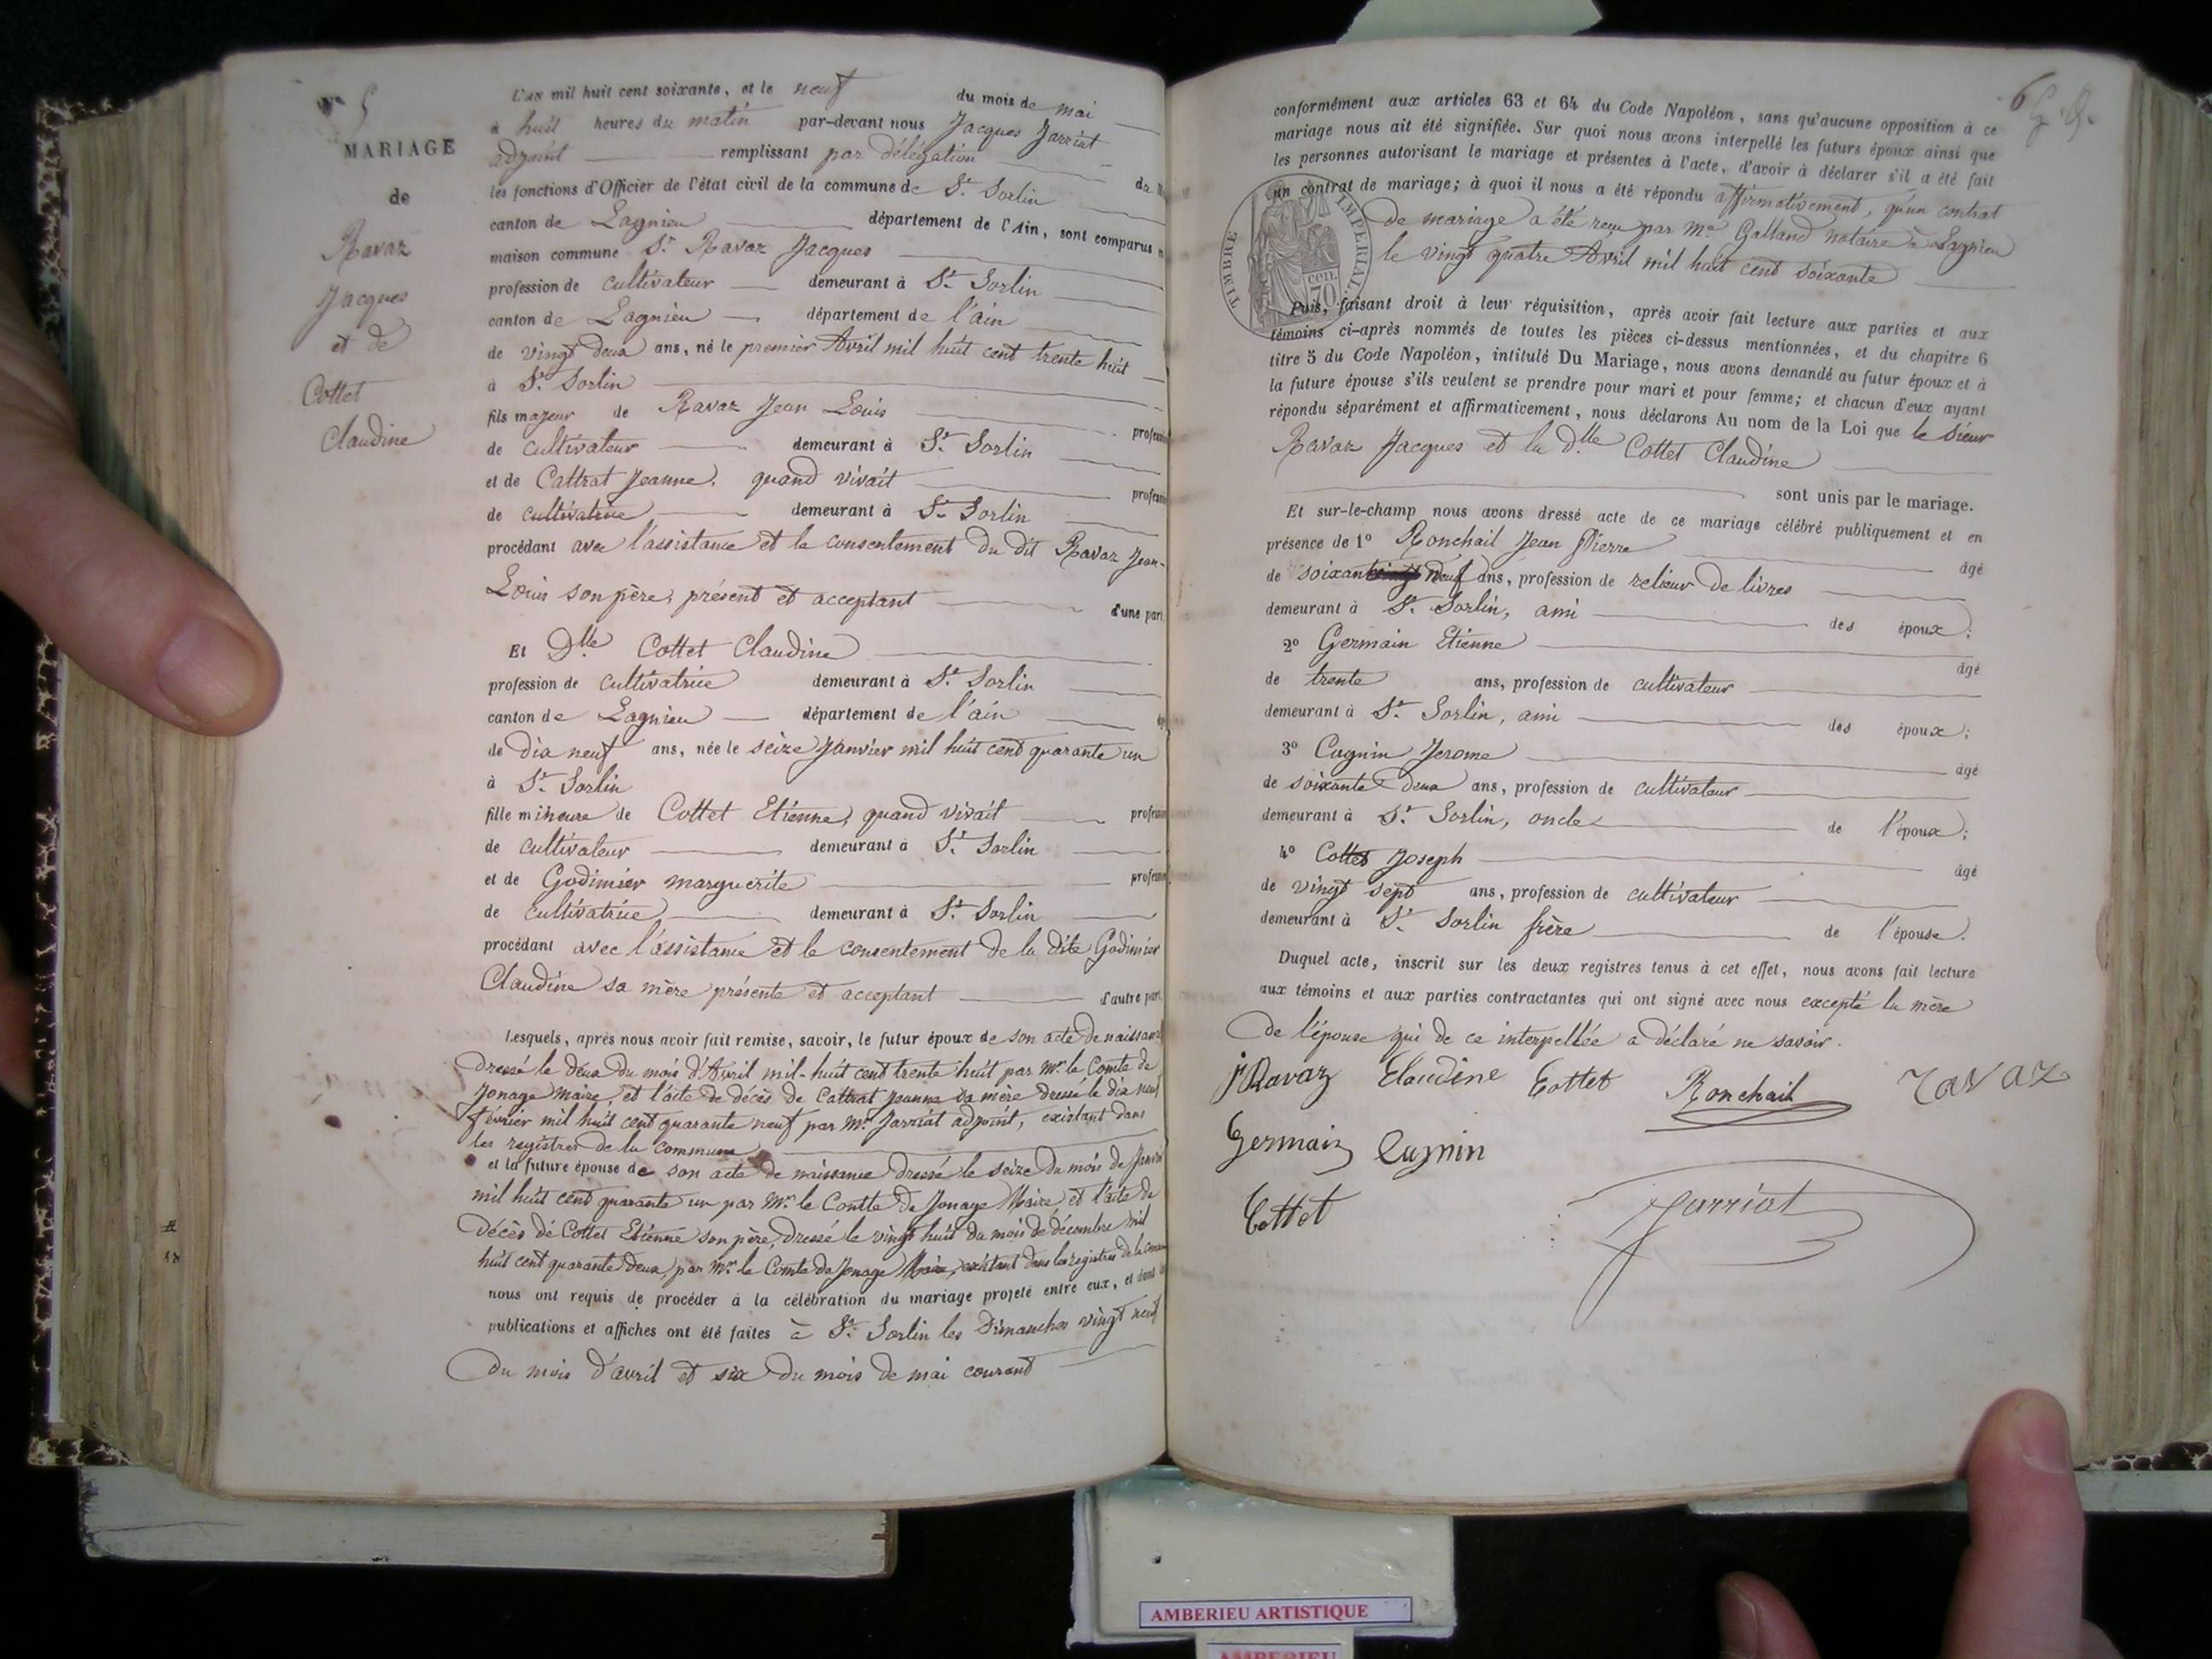 N° 5
MARIAGE
de
Ravaz
Jacques
et de
Cottet
Claudine
L'an mil huit cent soixante, et le neuf du mois de mai
à huit heures du matin par-devant nous Jacques Jarriat
adjoint remplissant par délégation
les fonctions d'Officier de l'état civil de la commune de St. Sorlin
canton de Lagnieu département de l'Ain, sont comparus
maison commune Sr. Ravaz Jacques
profession de cultivateur demeurant à St. Sorlin
canton de Lagnieu département de l'ain
de vingt deux ans, né le premier Avril mil huit cent trente huit
à St. Sorlin
fils majeur de Ravaz Jean Louis
de cultivateur demeurant à St. Sorlin
et de Cattrat Jeanne, quand vivait
de cultivatrice demeurant à St. Sorlin
procédant avec l'assistance et le consentement du dit Ravaz Jean-
Louis son père, présent et acceptant d'une part
Et Dlle Cottet Claudine
profession de cultivatrice demeurant à St. Sorlin
canton de Lagnieu département de l'ain
de dix neuf ans, née le seize Janvier mil huit cent quarante un
à St. Sorlin
fille mineure de Cottet Etienne, quand vivait
de cultivateur demeurant à St. Sorlin
et de Godimier marguerite
de cultivatrice demeurant à St. Sorlin
procédant avec l'assistance et le consentement de la dite Godimier
Claudine sa mère présente et acceptant d'autre part
Lesquels, après nous avoir fait remise, savoir, le futur époux de son acte de naissance
dressé le deux du mois d'Avril mil-huit cent trente huit par Mr. le Comte de
Jonage Maire, et l'acte de décès de Cattrat Jeanne sa mère dressé le dix neuf
février mil huit cent quarante neuf par Mr. Jarriat adjoint, existant dans
les registres de la commune
et la future épouse de son acte de naissance dressé le seize du mois de Janvier
mil huit cent quarante un par Mr. le Comte de Jonage Maire, et l'acte de
décès de Cottet Etienne son père, dressé le vingt huit du mois de décembre mil
huit cent quarante deux, par Mr. le Comte de Jonage Maire, existant dans les registres de la commune
nous ont requis de procéder à la célébration du mariage projeté entre eux, et dont
publications et affiches ont été faites à St. Sorlin les dimanches vingt neuf
du mois d'avril et six du mois de mai courant
6
conformément aux articles 63 et 64 du Code Napoléon, sans qu'aucune opposition à ce
mariage nous ait été signifiée. Sur quoi nous avons interpellé les futurs époux ainsi que
les personnes autorisant le mariage et présentes à l'acte, d'avoir à déclarer s'il a été fait
un contrat de mariage; à quoi il nous a été répondu affirmativement, qu'un contrat
de mariage a été reçu par Me Galland notaire à Lagnieu
le vingt quatre Avril mil huit cent soixante
TIMBRE IMPERIAL
70 cen
Puis, faisant droit à leur réquisition, après avoir fait lecture aux parties et aux
témoins ci-après nommés de toutes les pièces ci-dessus mentionnées, et du chapitre 6
titre 5 du Code Napoléon, intitulé Du Mariage, nous avons demandé au futur époux et à
la future épouse s'ils veulent se prendre pour mari et pour femme; et chacun d'eux ayant
répondu séparément et affirmativement, nous déclarons Au nom de la Loi que le sieur
Ravaz Jacques et la Dlle Cottet Claudine
sont unis par le mariage.
Et sur-le-champ nous avons dressé acte de ce mariage célébré publiquement et en
présence de 1° Ronchail Jean Pierre âgé
de soixante neuf ans, profession de relieur de livres
demeurant à St. Sorlin, ami des époux;
2° Germain Etienne âgé
de trente ans, profession de cultivateur
demeurant à St. Sorlin, ami des époux;
3° Cugnin Jerome âgé
de soixante deux ans, profession de cultivateur
demeurant à St. Sorlin, oncle de l'époux;
4° Cottet Joseph âgé
de vingt sept ans, profession de cultivateur
demeurant à St. Sorlin frère de l'épouse.
Duquel acte, inscrit sur les deux registres tenus à cet effet, nous avons fait lecture
aux témoins et aux parties contractantes qui ont signé avec nous excepté la mère
de l'épouse qui de ce interpellée a déclaré ne savoir.
J Ravaz Claudine Cottet Ronchail ravaz
Germain Cugnin
Cottet Jarriat
AMBERIEU ARTISTIQUE
AMBERIEU